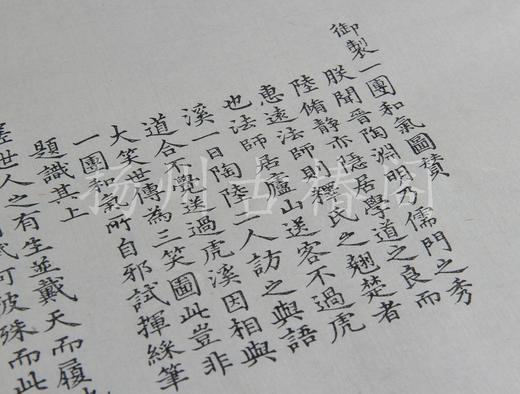 御製一團和氣圖贊
朕聞晉陶淵明乃儒門之秀
陸脩靜亦隱居學道之良而
惠遠法師則釋氏之翹楚者
也法師居廬山送客不過虎
溪一日陶陸二人訪之與語
道合不覺送過虎溪因相與
大笑世傳為三笑圖此豈非
一團和氣所自邪試揮綵筆
題識其上
世人之有生並戴天而履
彼殊而此
扬州古椿阁